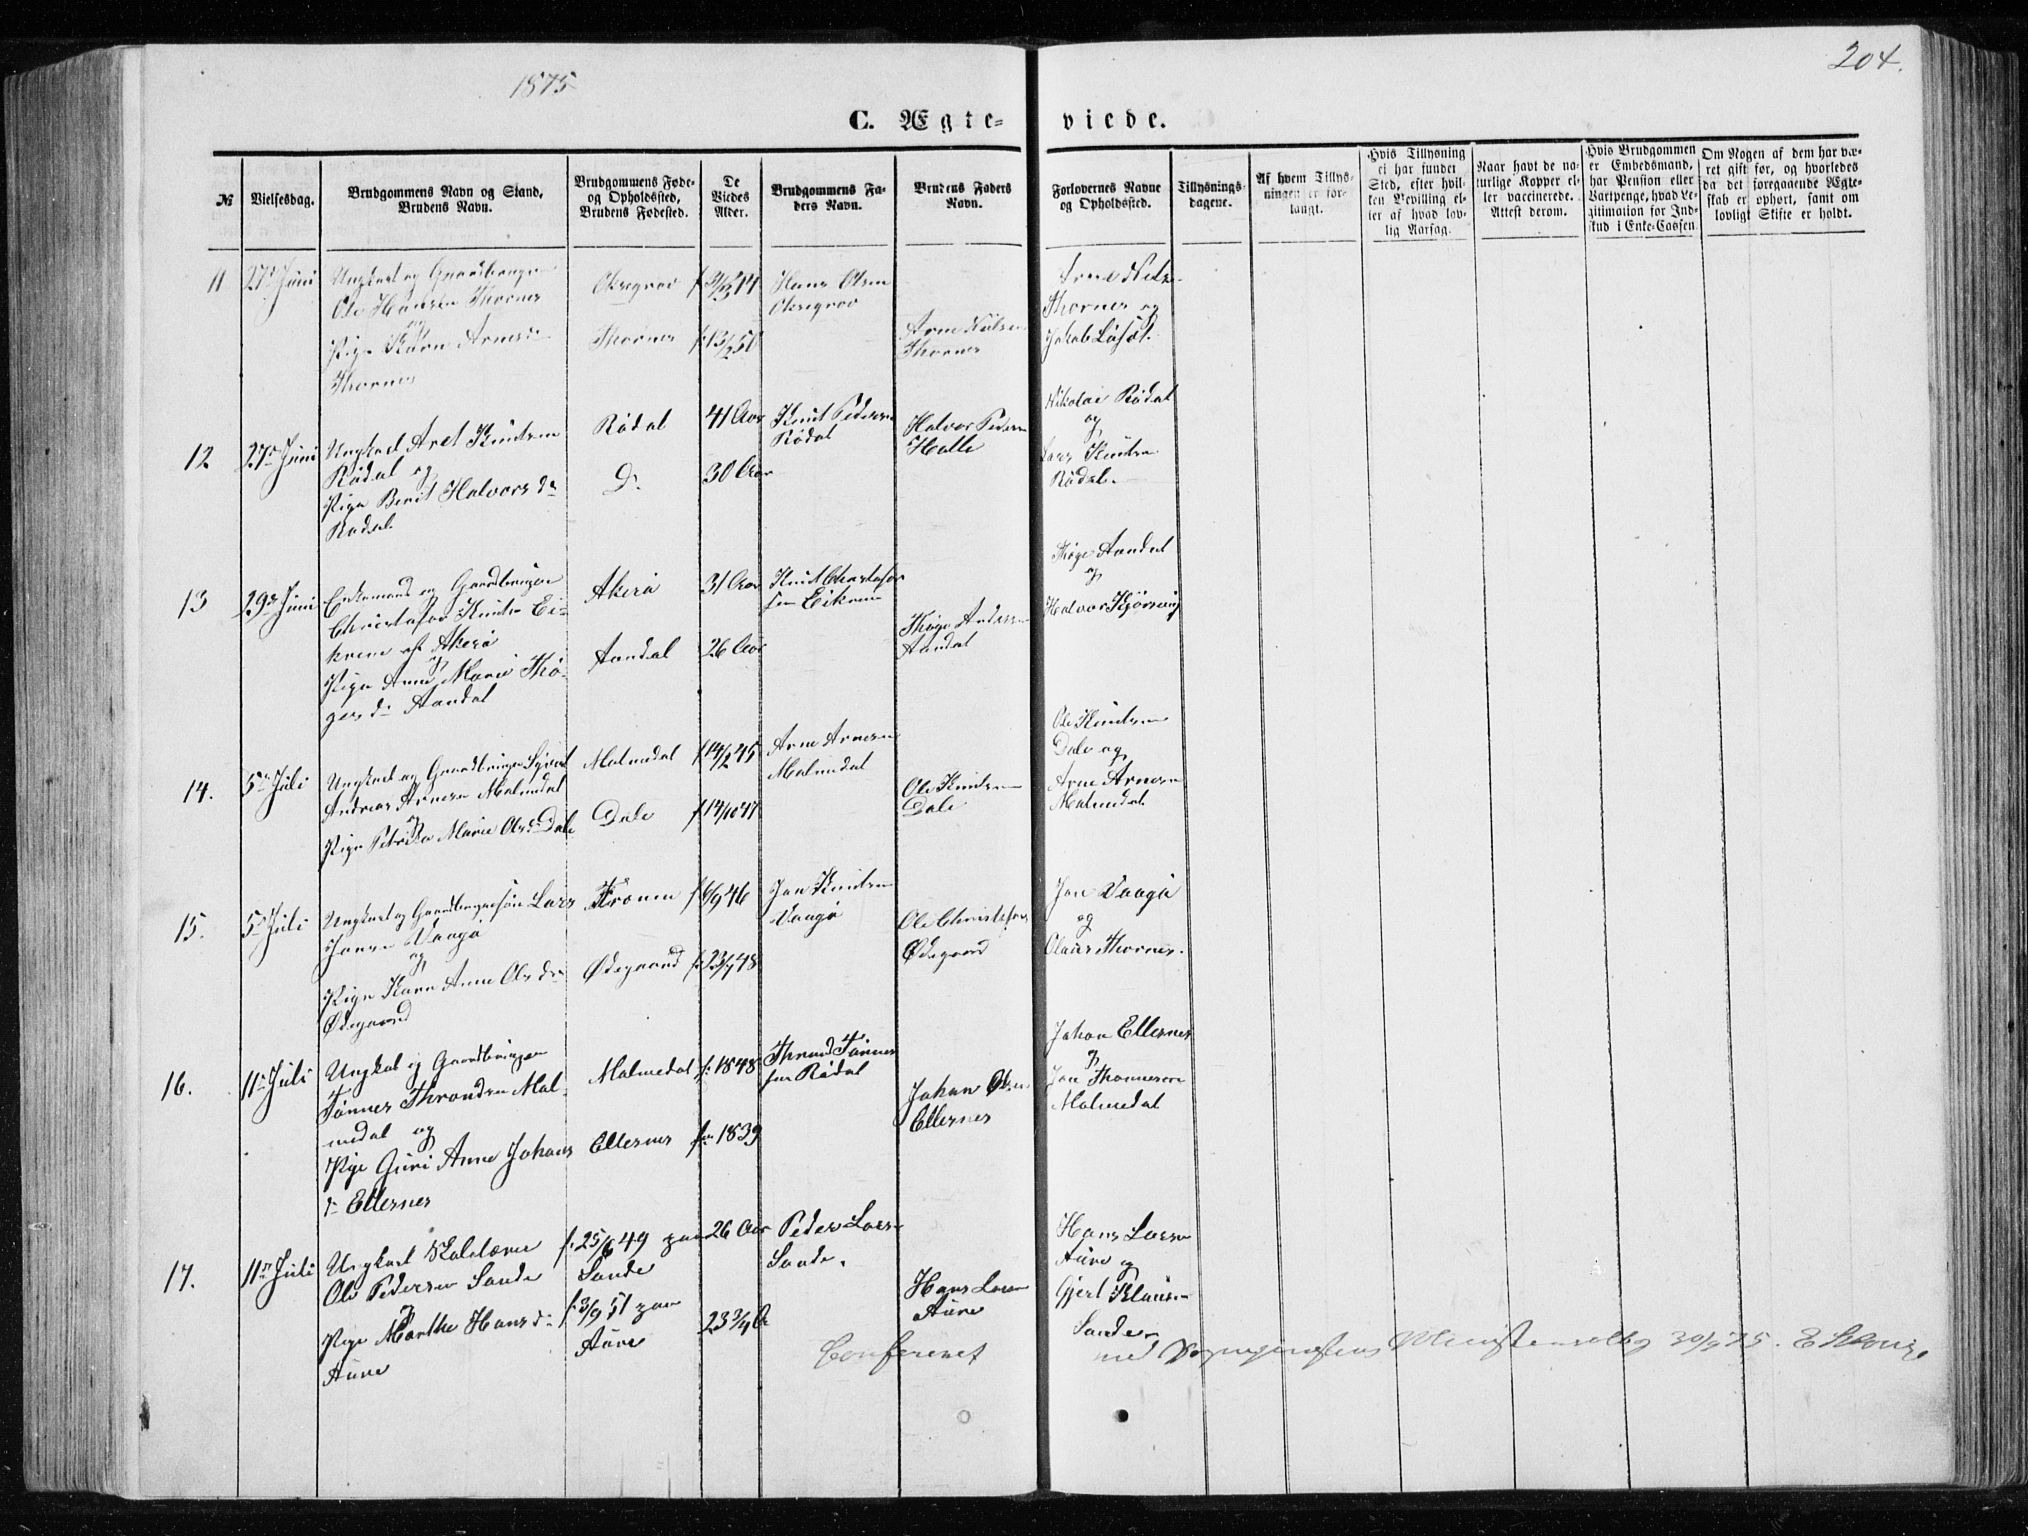 1875
204.
C. Ægte-
viede.
№
Vielsesdag.
Brudgommens Navn og Stand,
Brudens Navn.
Brudgommens Føde-
og Opholdssted,
Brudens Fødested.
De
Viedes
Alder.
Brudgommens Fa-
ders Navn.
Brudens Faders
Navn.
Forlovernes Navne
og Opholdssted.
Tillysnings-
dagene.
Af hvem Tillys-
ningen er for-
langt.
Hvis Tillysning
ei har fundet
Sted, efter hvil-
ken Bevilling el-
ler af hvad lov-
lig Aarsag.
Naar havt de na-
turlige Kopper el-
ler vaccinerede.
Attest derom.
Hvis Brudgommen
er Embedsmand,
har Pension eller
Vartpenge, hvad Le-
gitimation for Ind-
skud i Enke-Cassen.
Om Nogen af dem har væ-
ret gift før, og hvorledes
da det foregaaende Ægte-
skab er ophørt, samt om
lovligt Skifte er holdt.
11
27de Juni
Ungkarl og Gaardbruger
Ole Hansen Thornes
og
Pige Karn Arnesd.
Thornes
Thornes
Hans Olsen
Arne Nils.
Thornes
Arne Nils.
Thornes og
Jakob
12
27de Juni
Ungkarl Aret Knutsen
Rødal og
Pige Berit Halvorsdr
Rødal
Rødal
Do
41 Aar
30 Aar
Knut Pedersen
Rødal
Halvor Pedersen
Halle
Nikolai Rødal
og
Lars Knutsen
Rødal.
13
29de Juni
Enkemand og Gaardbruger
Christofer Knuts. Ei-
krem af Akerø
og
Pige Anne Marie Thø-
gersdr Aandal
Akerø
Aandal
31 Aar
26 Aar
Knut Christofer-
sen Eikrem
Thøger Anders.
Aandal
Thøger Aandal
og
Halvor
14.
5te Juli
Ungkarl og Gaardbruger
Andreas Arnesen Malmedal
og
Pige Marie Olsdr Dale
Malmedal
Dale
f 14/2 45
f 14/10 47
Arne Arnesen
Malmedal
Ole Knutsen
Dale
Ole Knutsen
Dale og
Arne Arnesen
Malmedal
15.
5te Juli
Ungkarl og Gaardbrugersøn Lars
Jonsen Vaagø
og
Pige Karn Anne Olsdr
Ødegaard
Ødegaard
f 6/9 46
Jon Knutsen
Vaagø
Ole Christofers.
Ødegaard
Jon Vaagø
og
Olaus Thornes.
16.
11te Juli
Ungkarl og Gaardbruger
Tønnes Throndsen Mal-
medal og
Pige Guri Anne Johans
dr Ellernes
Malmedal
Ellernes
f. 1848
f. 1839
Thrond Tønnes
sen Rødal
Johan Olsen
Ellernes
Johan Ellernes
og
Jon Thommesen
Malmedal
17.
11te Juli
Ungkarl Skolelærer
Ole Pedersen Sande
og
Pige Marthe Hansdr
Aure
f. 25/6 49 paa
Sande
f. 3/9 51 paa
Aure
26 Aar
23 3/4 A
Peder Lars.
Sande.
Hans Larsen
Aure
Hans Larsen
Aure og
Gjert Klausen
Sande
Confereret
med Sognepræstens Ministerialbog 30/9 75.